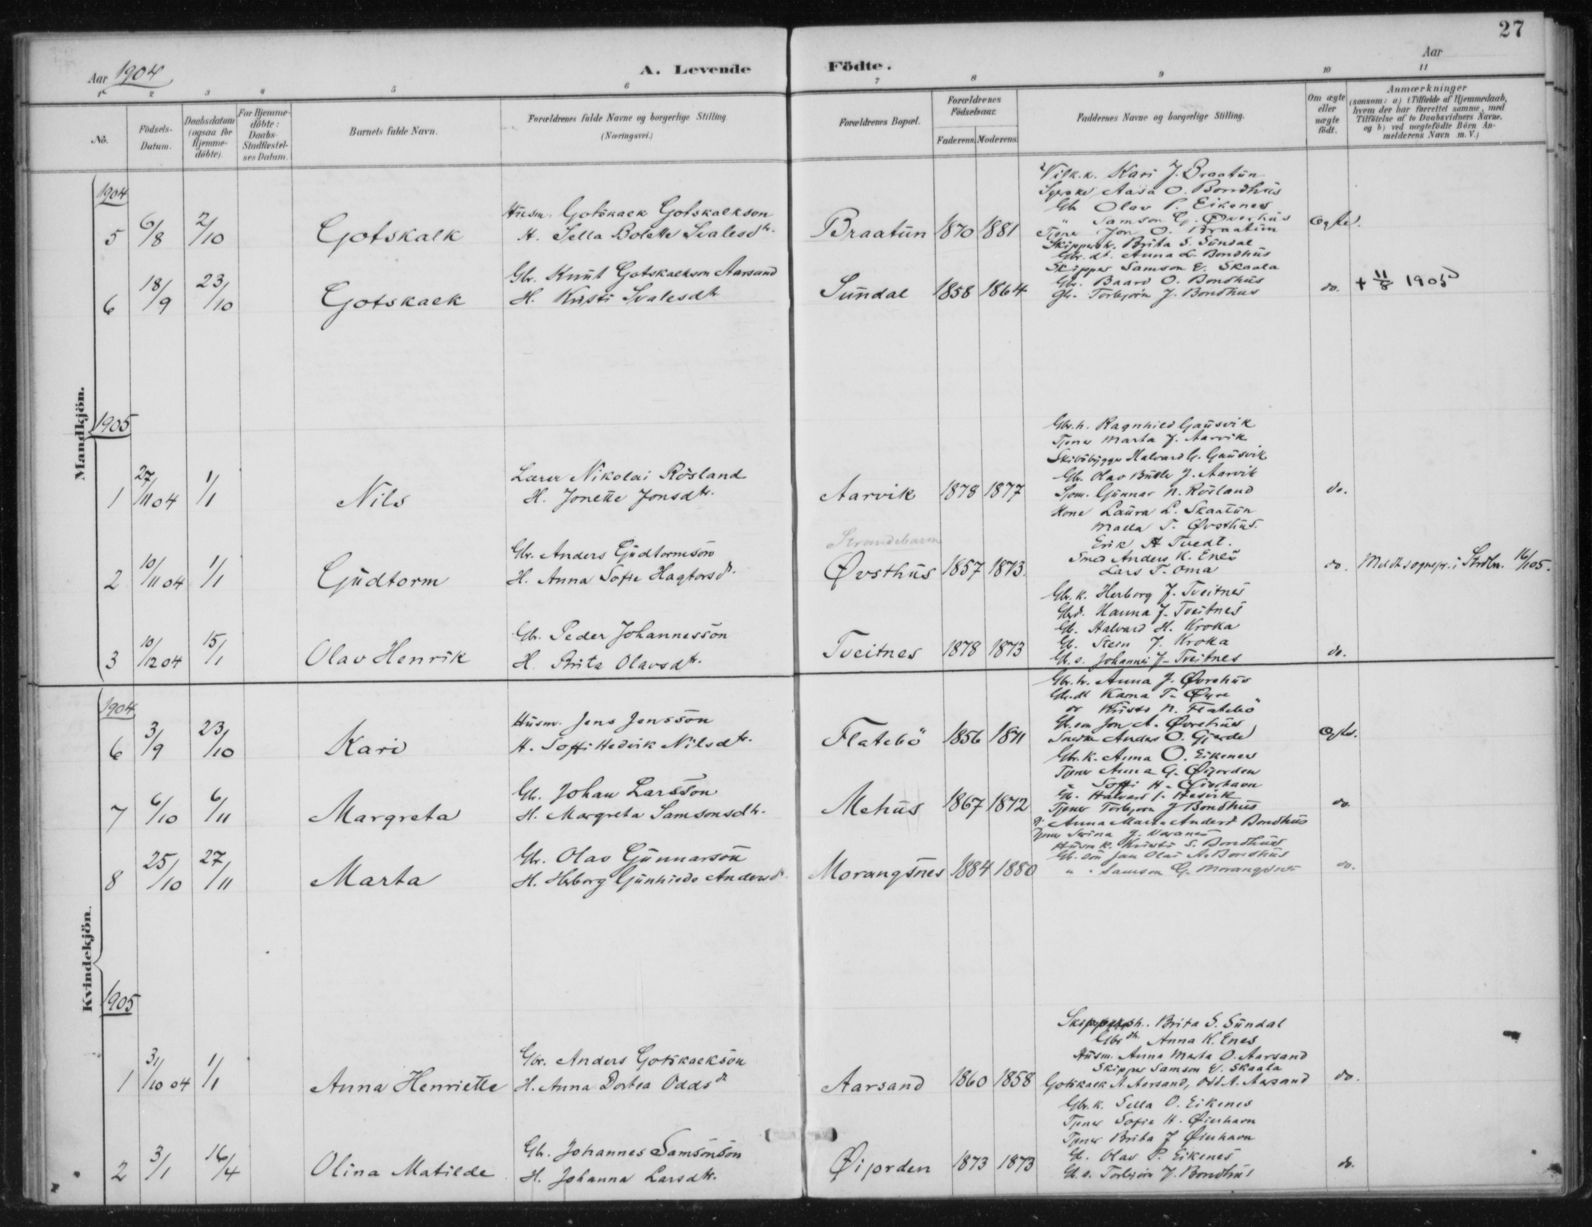 27
Aar 1904
A. Levende Födte.
Aar
1 2 3 4 5 6 7 8 9 10 11
No.
Födsels-Datum.
Daabsdatum (ogsaa for Hjemme-döbte)
For Hjemme-döbte: Daabs-Stadfæstel-ses Datum.
Barnets fulde Navn.
Forældrenes fulde Navne og borgerlige Stilling (Næringsvei.)
Forældrenes Bopæl.
Forældrenes Födselsaar.
Faderens. Moderens.
Faddernes Navne og borgerlige Stilling.
Om ægte eller uægte födt.
Anmærkninger
(saasom: a) i Tilfælde af Hjemmedaab, hvem der har forrettet samme, med Tilföielse af to Daabsvidners Navne, og b) ved uægtefödte Börn An-melderens Navn m. V.)
Mandkjön.
1904
5 6/8 2/10 Gotskalk
Husm. Gotskalk Gotskalkson
H. Sella Bolette Svalesdtr.
Braatun 1870 1881
Kari J. Braatun
Aasa O. Bondhus
Gb. Olav P. Eikenes
" Samson G. Øverhus
Tjener Jon O. Braatun
Ægte.
6 18/9 23/10 Gotskalk
Gbr. Knut Gotskalkson Aarsand
H. Kristi Svalesdtr
Sundal 1858 1864
Skippersk. Brita S. Sundal
Gbr. dt. Anna L. Bondhus
Skipper Samson E. Skaala
Gbr. Baard O. Bondhus
Gbr. Torbjörn J. Bondhus
do. + 11/8 1905
1905
1 27/11 04 1/1 Nils
Lærer Nikolai Rösland
H. Jonette Jonsdtr.
Aarvik 1878 1877
Gbr.h. Ragnhild Gausvik
Tjener Marta J. Aarvik
Skibsbygger Halvard G. Gausvik
Gb. Olav J. Aarvik
Gunnar N. Rösland
do.
2 10/11 04 1/1 Gudtorm
Gbr. Anders Gudtormson
H. Anna Sofie Hagtorsdr.
Strandebarm
Øvsthus 1857 1873
Kone Laura L. Skaatun
T. Øvsthus
Erik A Tvedt.
Smed Anders K. Enes
Lars T. Oma
do. i Strdbm. 16/1 05.
3 10/12 04 15/1 Olav Henrik
Gb. Peder Johannesson
H. Brita Olavsdtr.
Tveitnes 1878 1873
Gbr.k. Herborg J. Tveitnes
Gbrd. Hanna J. Tveitnes
Gb. Halvard H. Kroka
Gb. Stein J. Kroka
Gb.s. Johannes J. Tveitnes
do.
Kvindekjön.
1904
6 3/9 23/10 Kari
Husm. Jens Jensson
H. Soffi Hedvik Nilsdtr.
Flatebö 1856 1871
Gbr.h. Anna J. Øvrehus
Gbr.dt Kama T. Øyre
N. Flatebö
Gb. søn Jon A. Øvrehus
Anders O. Gjerde
Ægte.
7 6/10 6/11 Margreta
Gb. Johan Larsson
H. Margreta Samsonsdtr.
Mehus 1867 1872
Gbr.k. Anna O. Eikenes
Tjener Anna G. Øijorden
Soffi H. Øierhavn
Tjener Torbjörn J Bondhus
do.
8 25/10 27/11 Marta
Gb. Olav Gunnarson
H. Herborg Gunhilde Andersd.
Morangsnes 1884 1880
Anna Marta Andersd Bondhus
Husm k. Kristi S. Bondhus
Gbr. sön Jan Olai A. Bondhus
" " Samson G. Morangsnes
do.
1905
1 31/10 04 1/1 Anna Henriette
Gbr. Anders Gotskalkson
H. Anna Dortea Oddsd
Aarsand 1860 1858
Brita S. Sundal
Gbr dtr Anna K. Enes
Husm. Anna Marta O. Aarsand
Skipper Samson E. Skaala
Gotskalk A. Aarsand, Odd A. Aarsand
do.
2 3/1 16/4 Olina Matilde
Gb. Johannes Samsonson
H. Johanna Larsdtr.
Øijorden 1873 1873
Gbr.k. Sella O. Eikenes
Tjener Sofie H. Øierhavn
Tjener Brita J Øierhavn
Gb. Olav P. Eikenes
Gb.s. Torbjörn J. Bondhus
do.